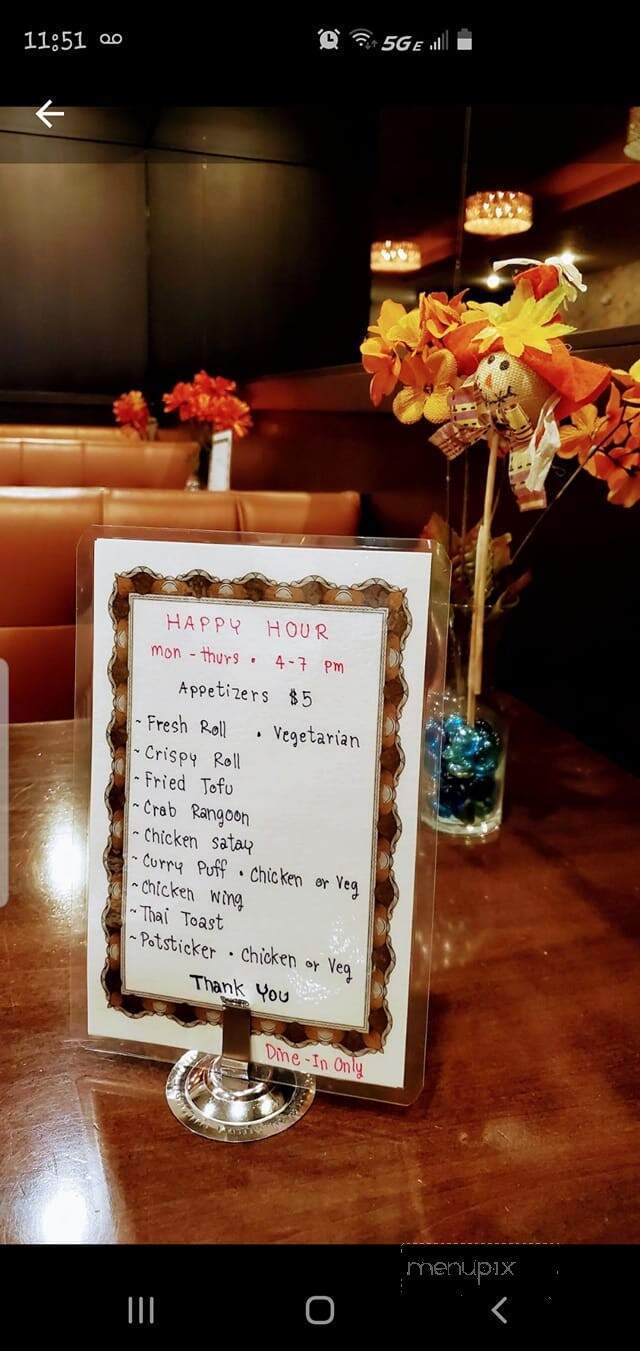 11:51
5GE
HAPPY HOUR
mon - thurs • 4-7 pm
Appetizers $5
~ Fresh Roll • Vegetarian
~ Crispy Roll
~ Fried Tofu
~ Crab Rangoon
~ Chicken satay
~ Curry Puff • Chicken or Veg
~ Chicken wing
~ Thai Toast
~ Potsticker • Chicken or Veg
Thank You
Dine-In Only
menupix